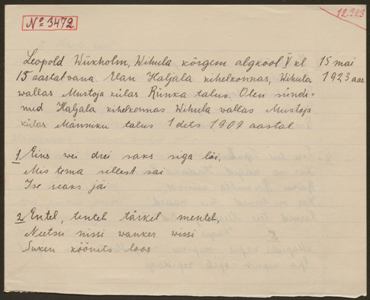 No 3472
12243
Leopold Wixholm, Wihula kõrgem algkool V kl 15 mai
15 aastat vana Elan Haljala kihelkonnas, Wihula 1923 aas
wallas Mustoja külas Rünka talus. Olen sündi-
nud Haljala kihelkonnas Wihula wallas Mustoja
külas Männiku talus 1 dets 1907 aastal
1 Eins wei drei saks siga läi,
Mis tema sellest sai
Ise seaks jäi
2 Entel, tentel tärkel mentel,
Neetsu nissi wanker wissi
Suken köönits loos